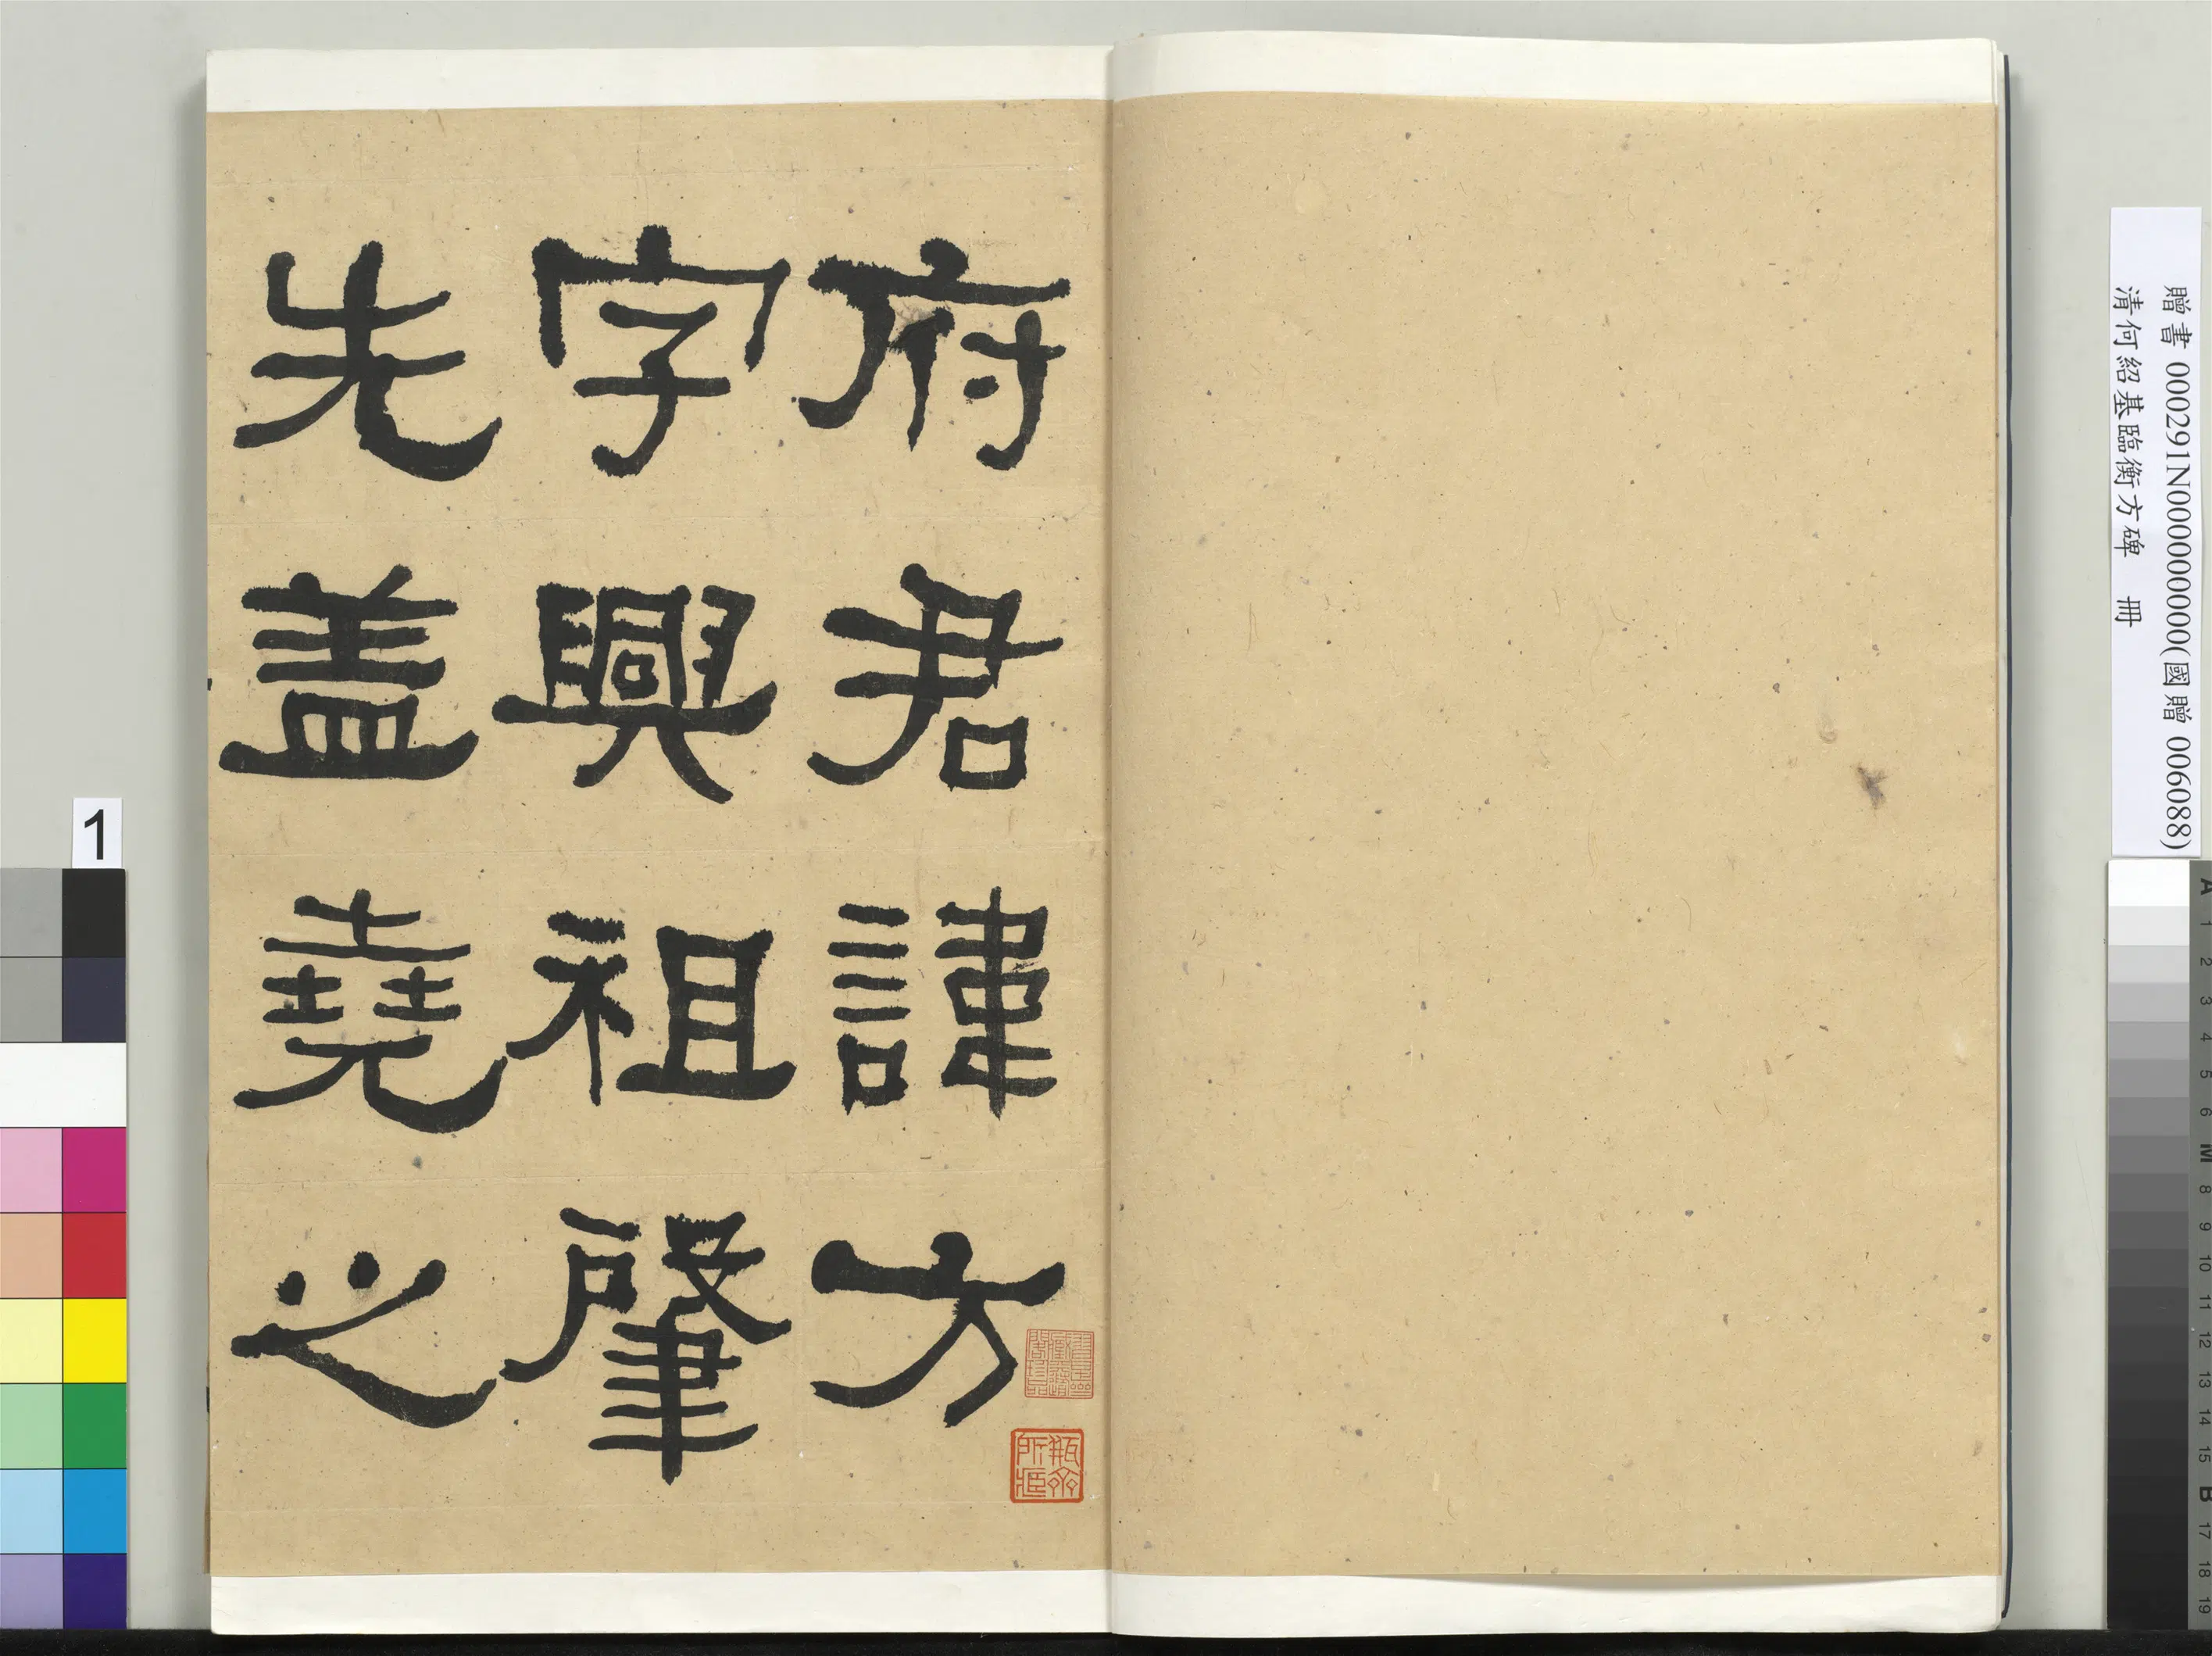 府君諱方
字興祖肇
先盖堯之
瓶齋所藏
贈書 000291N000000000(國贈 006088)
清何紹基臨衡方碑 冊
1
A 1 2 3 4 5 6 M 8 9 10 11 12 13 14 15 B 17 18 19